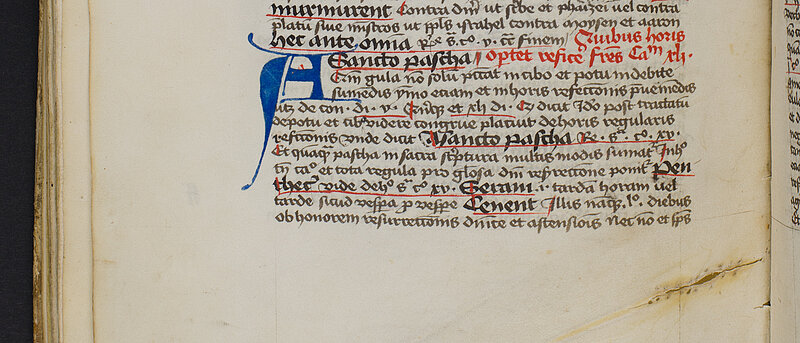 murmurent Contra dm̄ ut scbe et pharizei uel contra
platū siue mīstros ut ppls israhel contra moysen et aaron
hec ante omnia Re s. co. v. cc finem Quibus horis
A Sancto pascha optet reficē frēs Cam xli.
gula nō solū pcat in cibo et potu indebite
sumedis ymo etiam et in horis refectionis pueniedis
de con. di. v. et xli di. dicit Ido post tractatū
de potu et cib videre congrue placuit de horis regularis
refctionis vnde dicit A sancto pascha Re. s. co. xv.
Et quaq pascha in sacra scptura multis modis sumat In ho
tn cao et tota regula pro glosa dni resrrectione ponit Pen
thec vide deho s. co xv. Seram .i. tardā horam uel
tarde sicud vespa p vespe Cenent Illis naq lo. diebus
ob honorem resurrectionis dnice et astensiois nec nō et sps